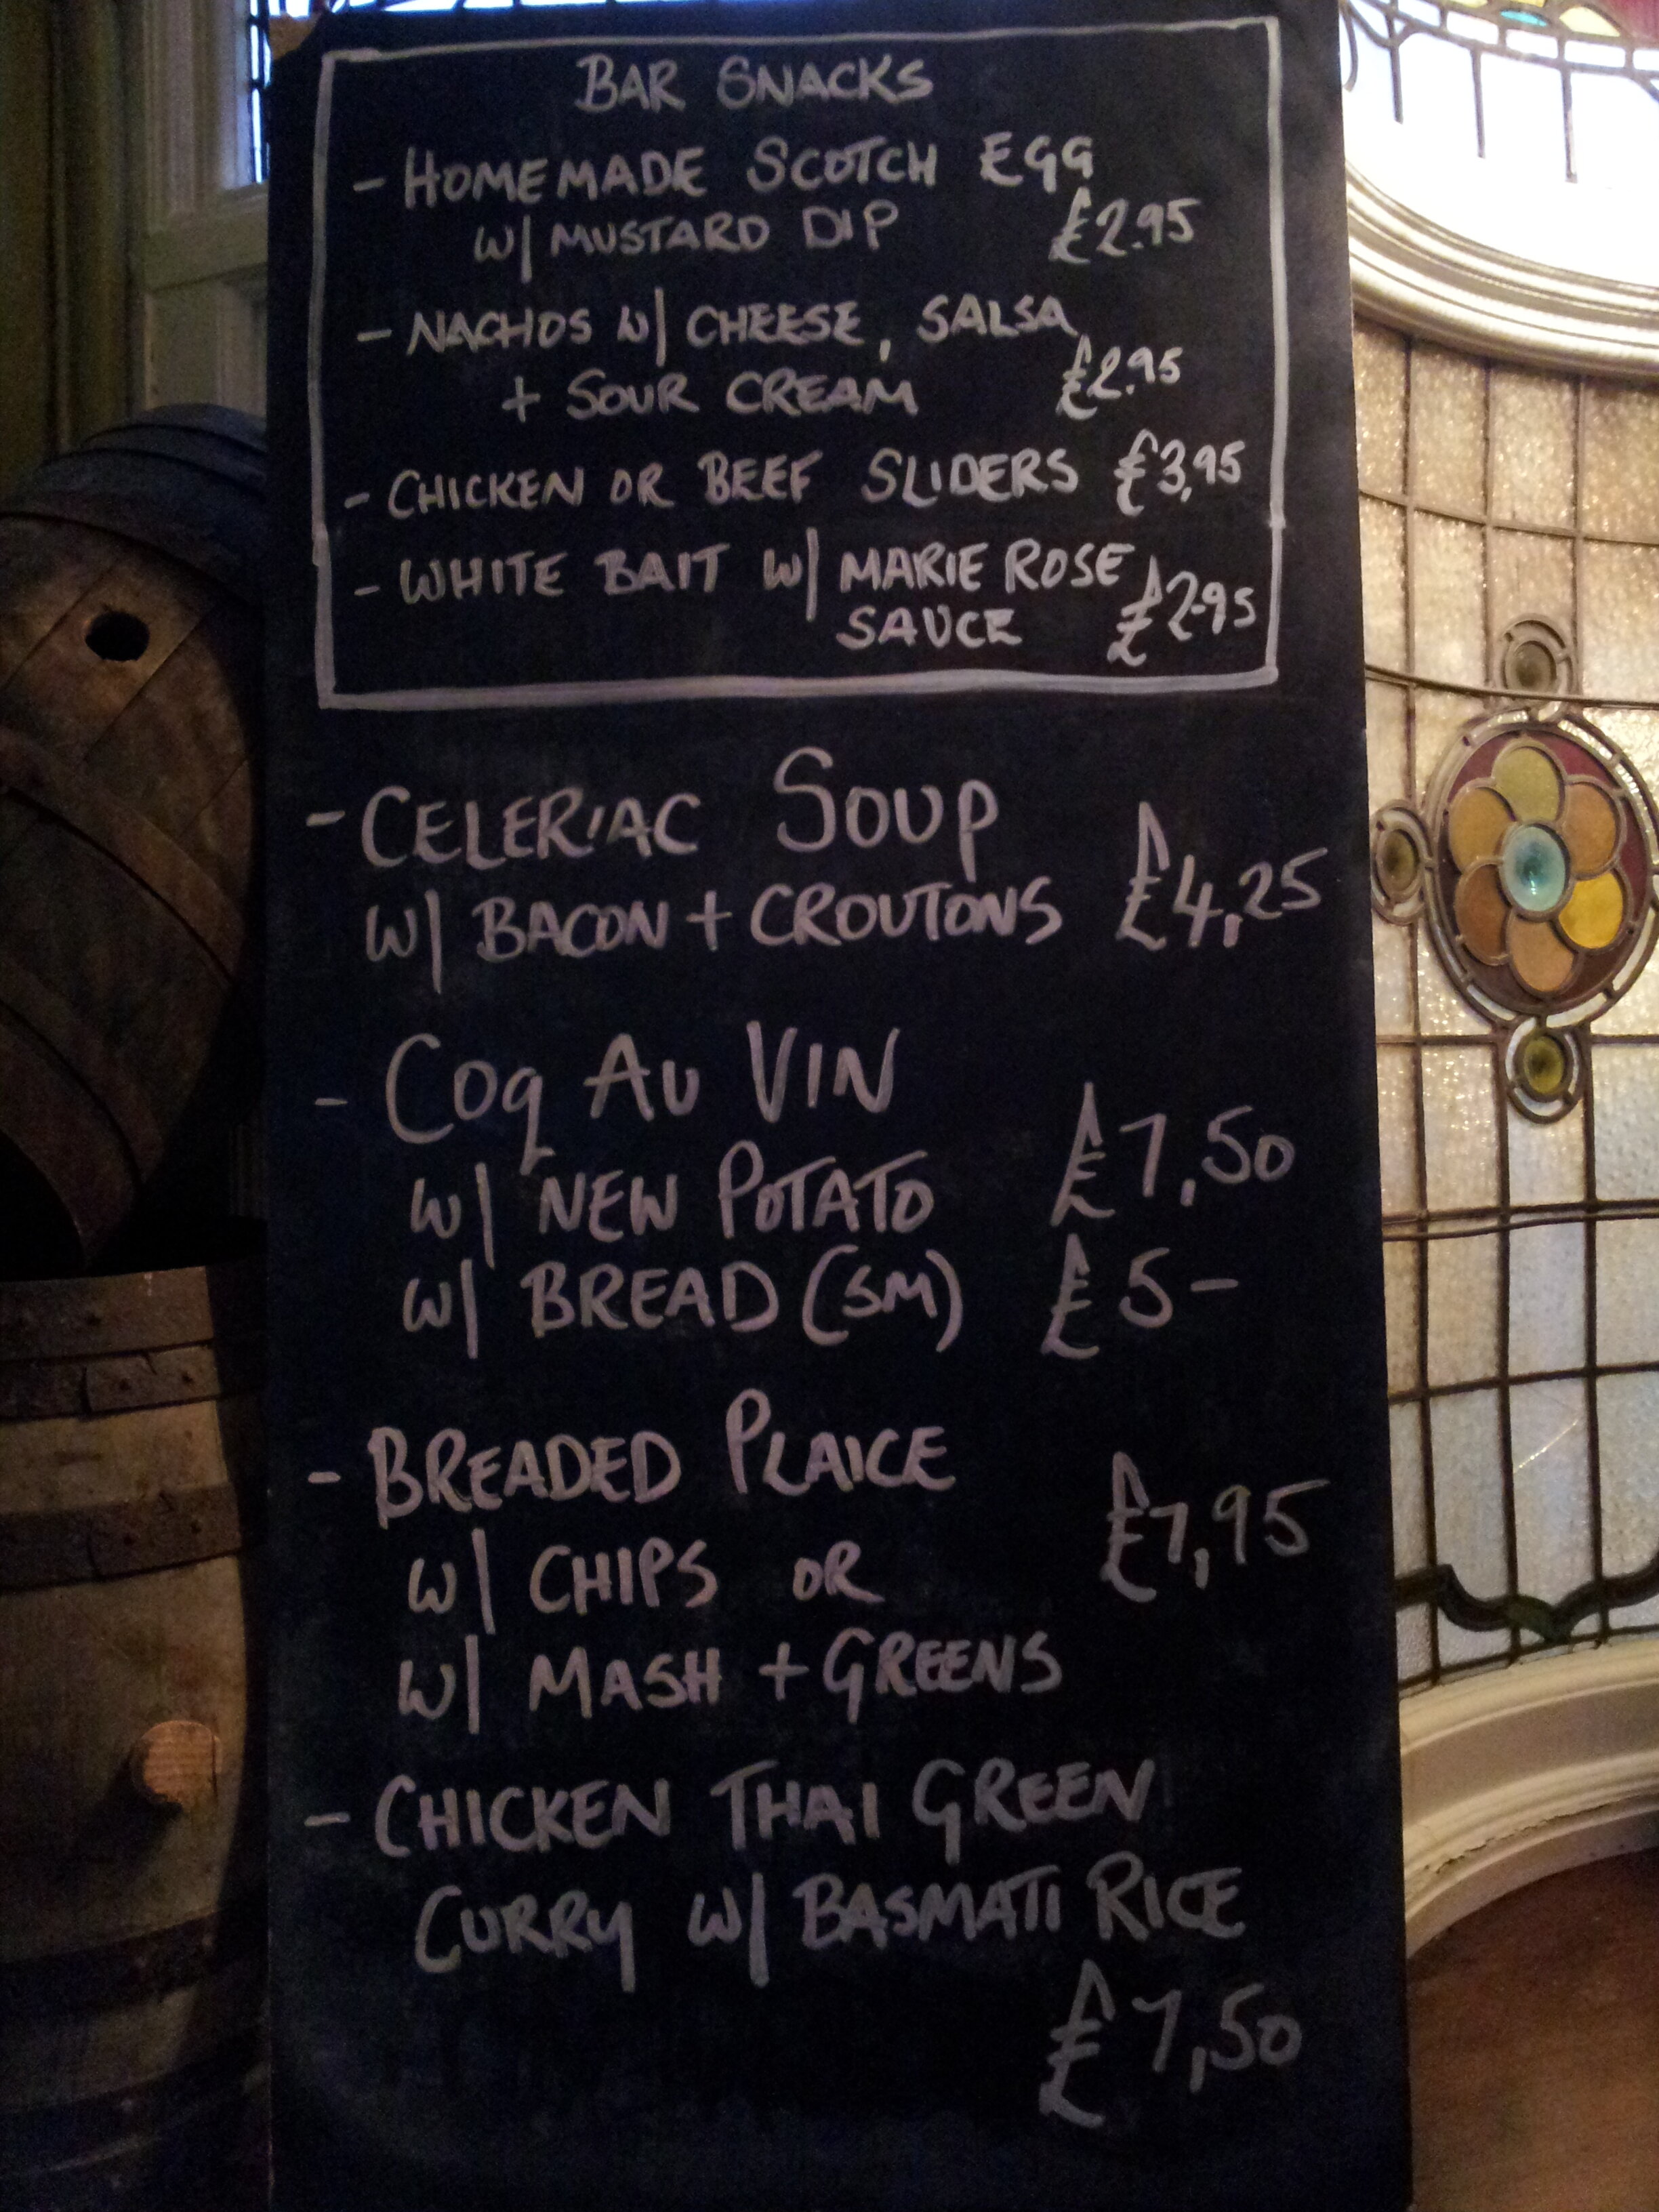 BAR SNACKS
- HOMEMADE SCOTCH EGG
W/ MUSTARD DIP £2.95
- NACHOS W/ CHEESE, SALSA
+ SOUR CREAM £2.95
- CHICKEN OR BEEF SLIDERS £3,95
- WHITE BAIT W/ MARIE ROSE
SAUCE £2.95
- CELERIAC SOUP
W/ BACON + CROUTONS £4,25
- COQ AU VIN
W/ NEW POTATO £7,50
W/ BREAD (SM) £5-
- BREADED PLAICE
W/ CHIPS OR £7,95
W/ MASH + GREENS
- CHICKEN THAI GREEN
CURRY W/ BASMATI RICE
£7,50